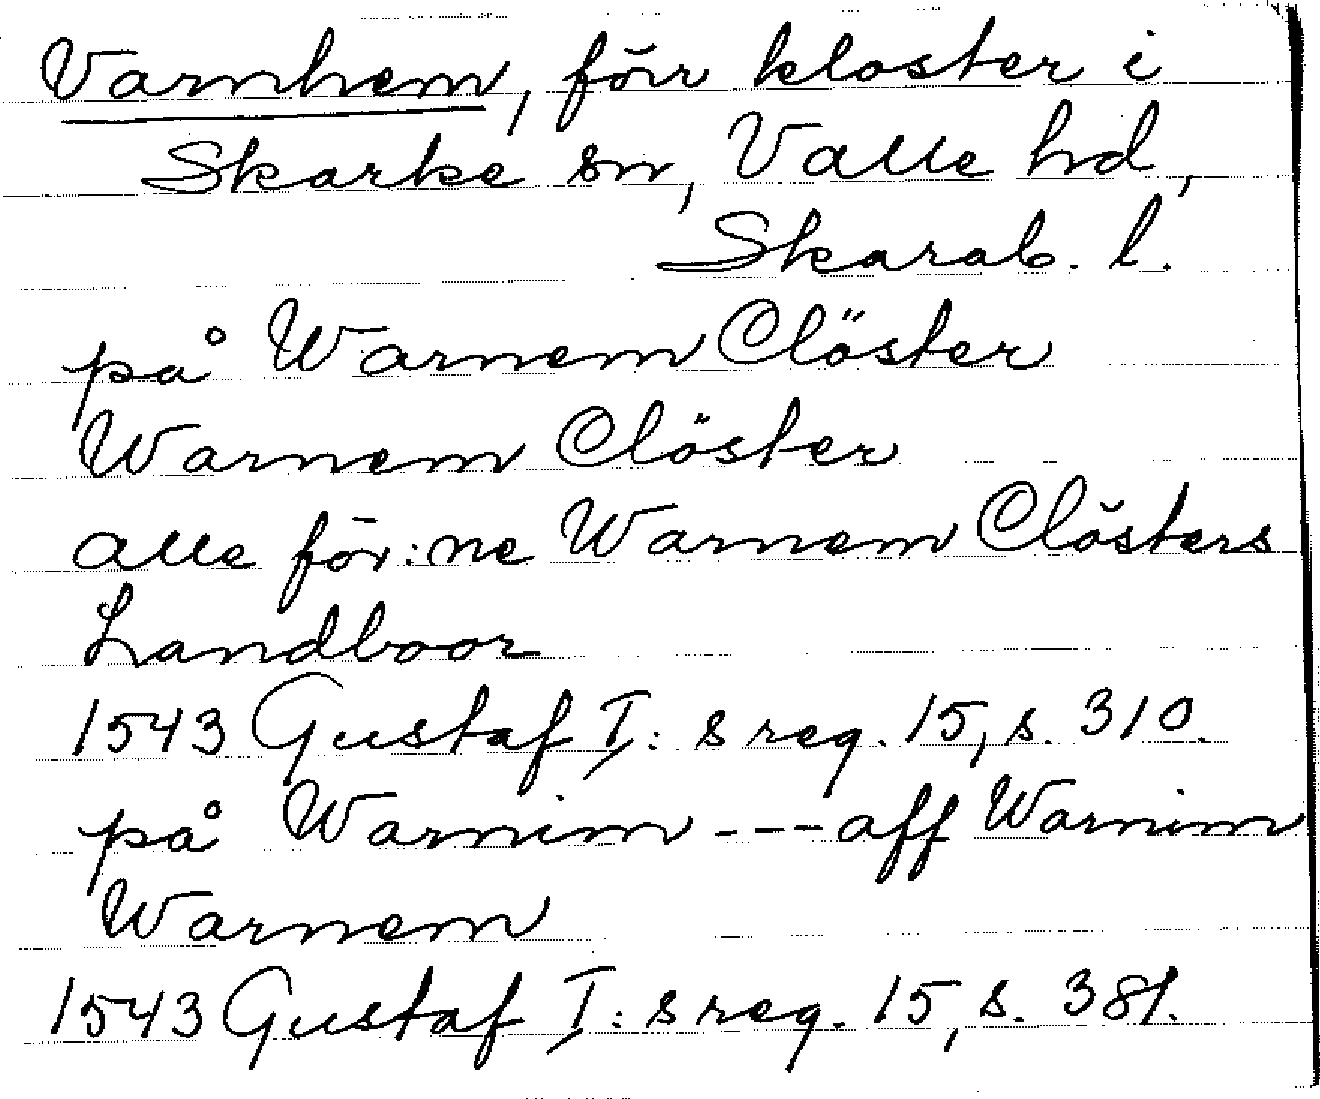 Varnhem, förr kloster i
Skarke sn, Valle hd,
Skarab. l.
på Warnem Clöster
Warnem Clöster
alle för:ne Warnem Clösters
Landboor
1543 Gustaf I:s reg. 15, s. 310.
på Warnim --- aff Warnim
Warnem
1543 Gustaf I:s reg. 15, s. 381.